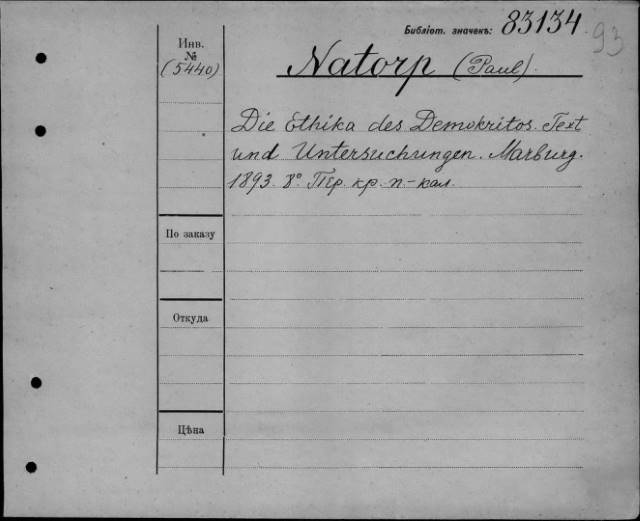 Библіот. значекъ: 83134
93
Инв.
№
(5440)
Natorp (Paul).
Die Ethika des Demokritos. Text
und Untersuchungen. Marburg.
1893. 8° Пер. кр. п-кал.
По заказу
Откуда
Цѣна